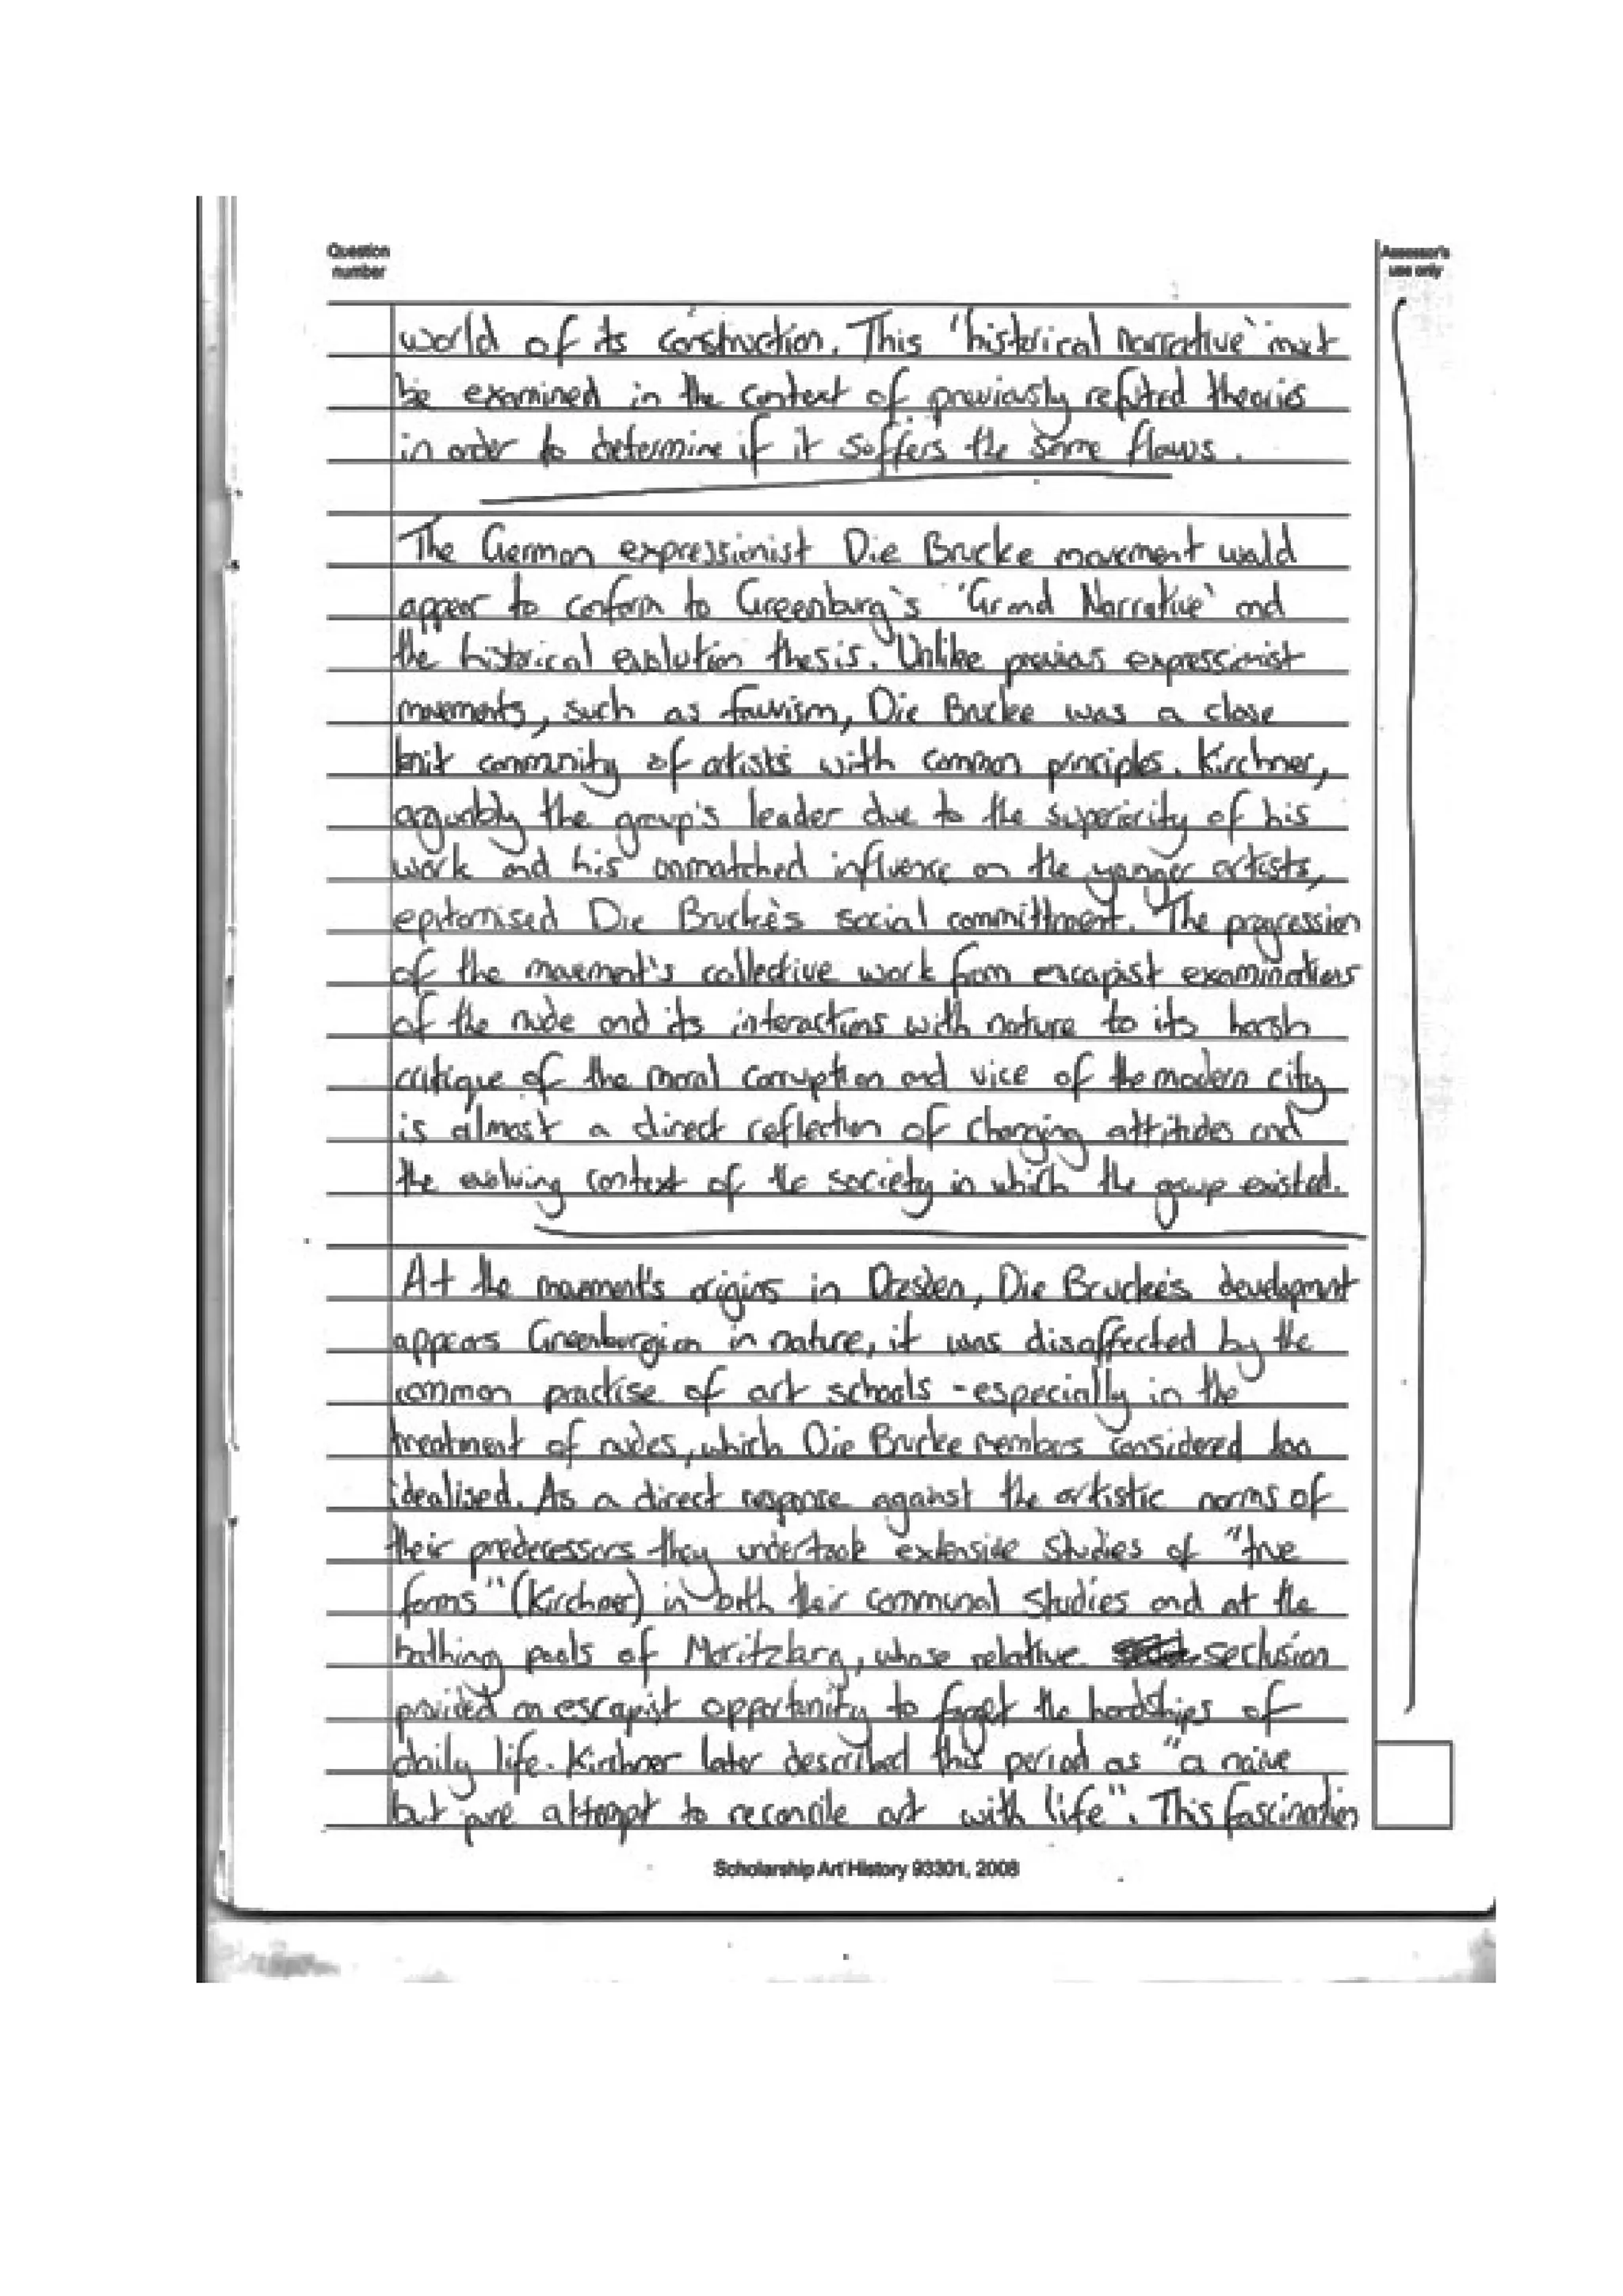 Question
number
Assessor's
use only
world of its construction. This 'historical narrative' must
be examined in the context of previously refuted theories
in order to determine if it suffers the same flaws.
The German expressionist Die Brucke movement would
appear to conform to Greenburg's 'Grand Narrative' and
the historical evolution thesis. Unlike previous expressionist
movements, such as fauvism, Die Brucke was a close
knit community of artists with common principles. Kirchner,
arguably the group's leader due to the superiority of his
work and his unmatched influence on the younger artists,
epitomised Die Brucke's social committment. The progression
of the movement's collective work from escapist examinations
of the nude and its interactions with nature to its harsh
critique of the moral corruption and vice of the modern city
is almost a direct reflection of changing attitudes and
the evolving context of the society in which the group existed.
At the movement's origins in Dresden, Die Brucke's development
appears Greenburgian in nature, it was disaffected by the
common practise of art schools - especially in the
treatment of nudes, which Die Brucke members considered too
idealised. As a direct response against the artistic norms of
their predecessors they undertook extensive studies of "true
forms" (Kirchner) in both their communal studies and at the
bathing pools of Moritzburg, whose relative seclusion
provided an escapist opportunity to forget the hardships of
daily life. Kirchner later described this period as "a naive
but pure attempt to reconcile art with life". This fascination
Scholarship Art History 93301, 2008